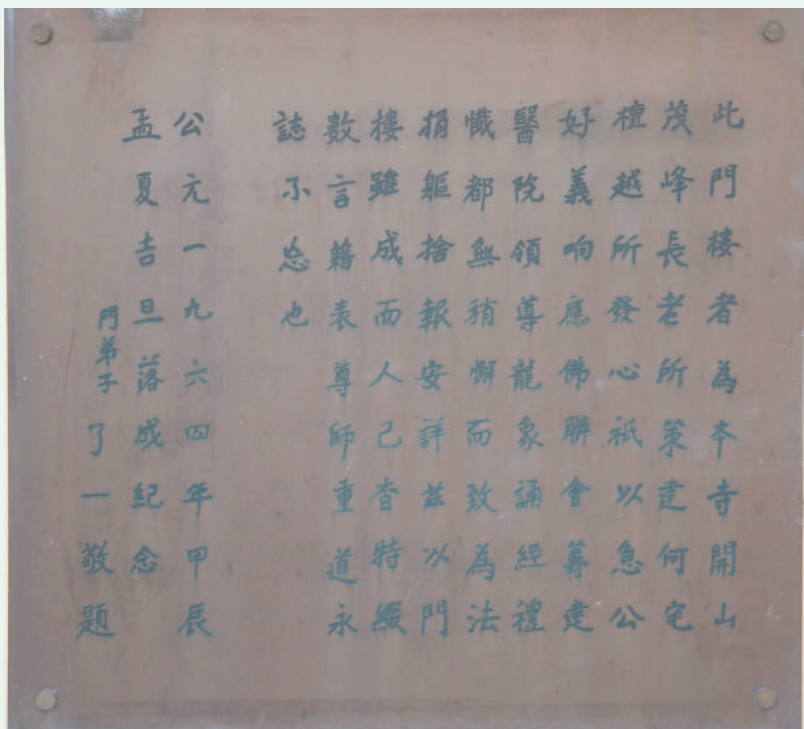 此門楼者為本寺開山
茂峰長老所策建何宅
檀越所發心祇以急公
好義响應佛聨會籌建
醫院領導龍象誦經禮
懺都無稍懈而致為法
捐軀捨報安詳兹以門
楼雖成而人已杳特綴
數言藉表尊師重道永
誌不忘也
公元一九六四年甲辰
孟夏吉旦落成紀念
門弟子了一敬題